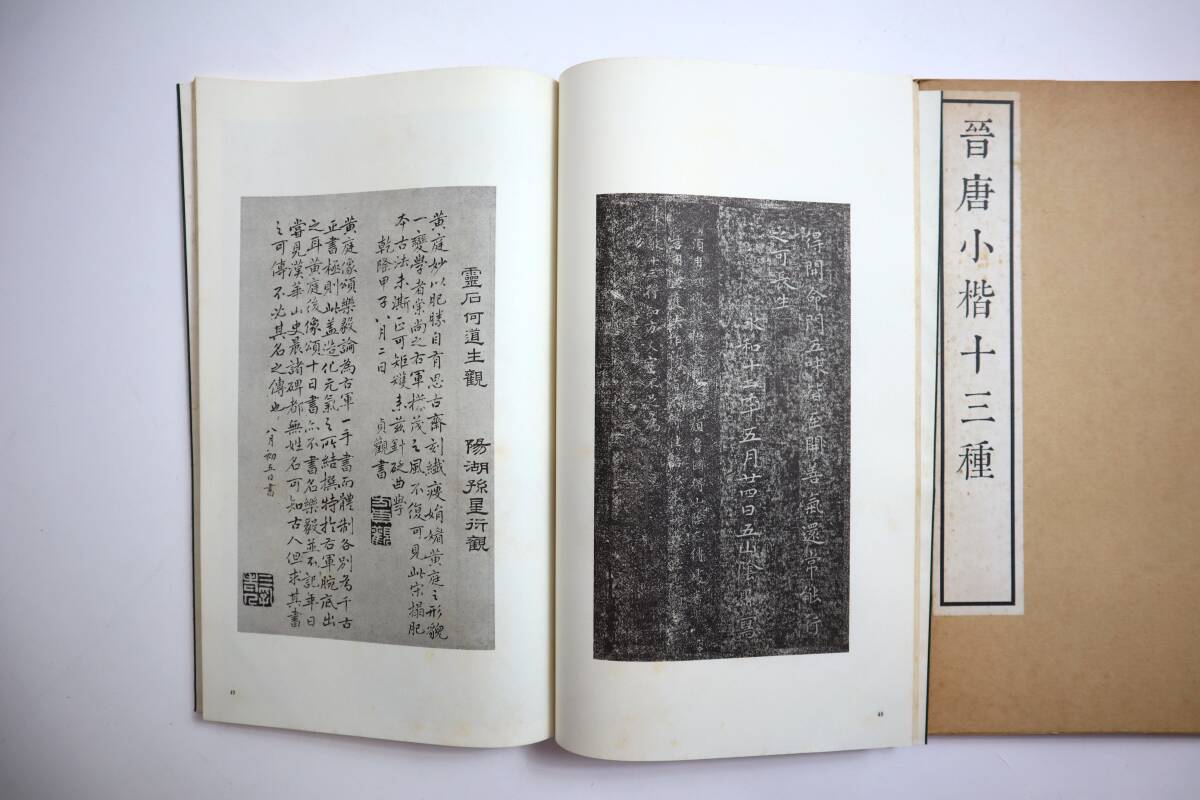 晉唐小楷十三種
得開命門五味皆至開善氣還常能行
之可長生
永和十二年五月廿四日五山陰縣寫
48
靈石何道生觀
陽湖孫星衍觀
黃庭妙以肥勝自有思古齋刻纖瘦娟媚黃庭之形貌
一變學者崇尚之右軍樸茂之風不復可見此宋搨肥
本古法未澌正可矩矱末茲針砭曲學
乾隆甲子八月二日 貞觀書
黃庭像頌樂毅論為右軍一手書而體制各別為千古
正書極則此蓋造化元氣之所結撰特於右軍腕底出
之耳黃庭後像頌十日書亦不書名樂毅並不記年日
嘗見漢華山史晨諸碑都無姓名可知古人但求其書
之可傳不必其名之傳也 八月初五日書
49